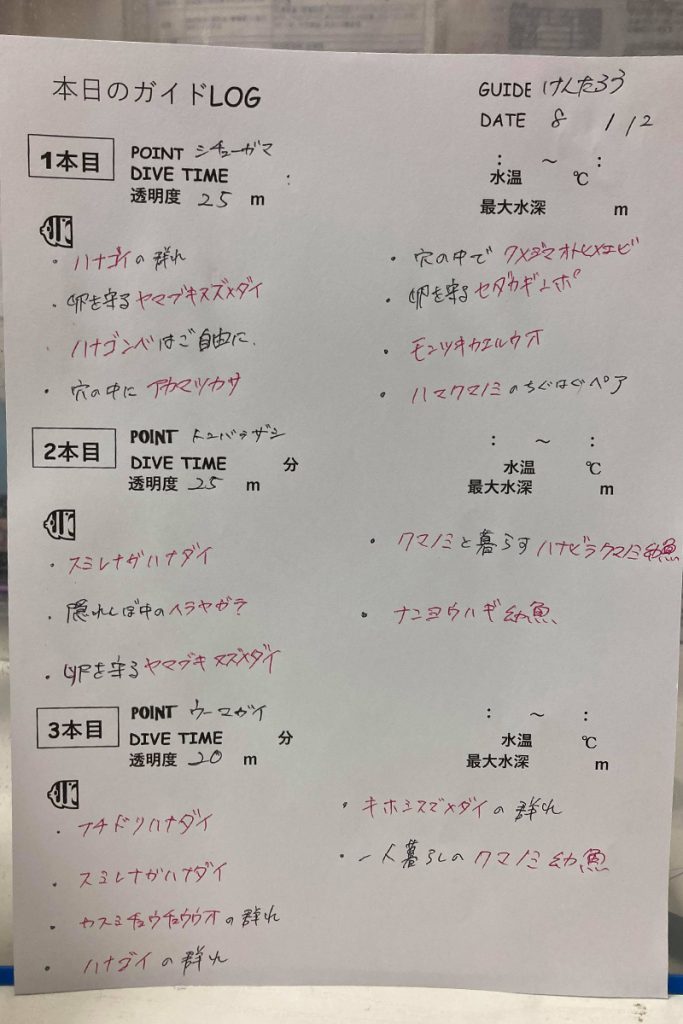 本日のガイドLOG
GUIDE けんたろう
DATE 8 / 12
1本目
POINT シチューガマ
DIVE TIME :
透明度 25 m
: ～ :
水温 ℃
最大水深 m
・ハナゴイの群れ
・卵を守るヤマブキスズメダイ
ハナゴンベはご自由に.
・穴の中にアカマツカサ
・穴の中でクメジマオトヒメエビ
・卵を守るセダカギンポ
・モンツキカエルウオ
・ハマクマノミのちぐはぐペア
2本目
POINT トンバラザシ
DIVE TIME 分
透明度 25 m
: ～ :
水温 ℃
最大水深 m
・スミレナガハナダイ
・隠れしば中のヘラヤガラ
・卵を守るヤマブキスズメダイ
・クマノミと暮らすハナビラクマノミ幼魚
・ナンヨウハギ幼魚
3本目
POINT ウーマガイ
DIVE TIME 分
透明度 20 m
: ～ :
水温 ℃
最大水深 m
・フチドリハナダイ
・スミレナガハナダイ
・カスミチョウチョウウオの群れ
・ハナゴイの群れ
・キホシスズメダイの群れ
・一人暮らしのクマノミ幼魚